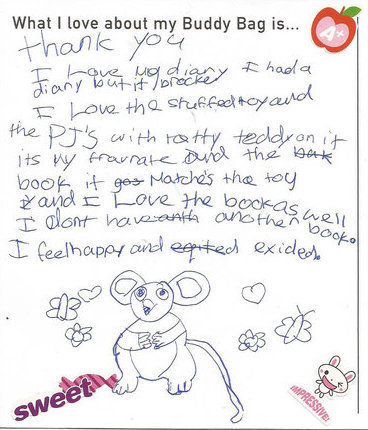 What I love about my Buddy Bag is...
A+
thank you
I Love my diary I had a
diary but it brocke
I Love the stuffed toy and
the PJ's with tatty teddy on it
its my fravrate and the bak
book it gos Matche's the toy
and I Love the book as well
I dont have anth another book.
I feel happy and eqited exided.
sweet
IMPRESSIVE!